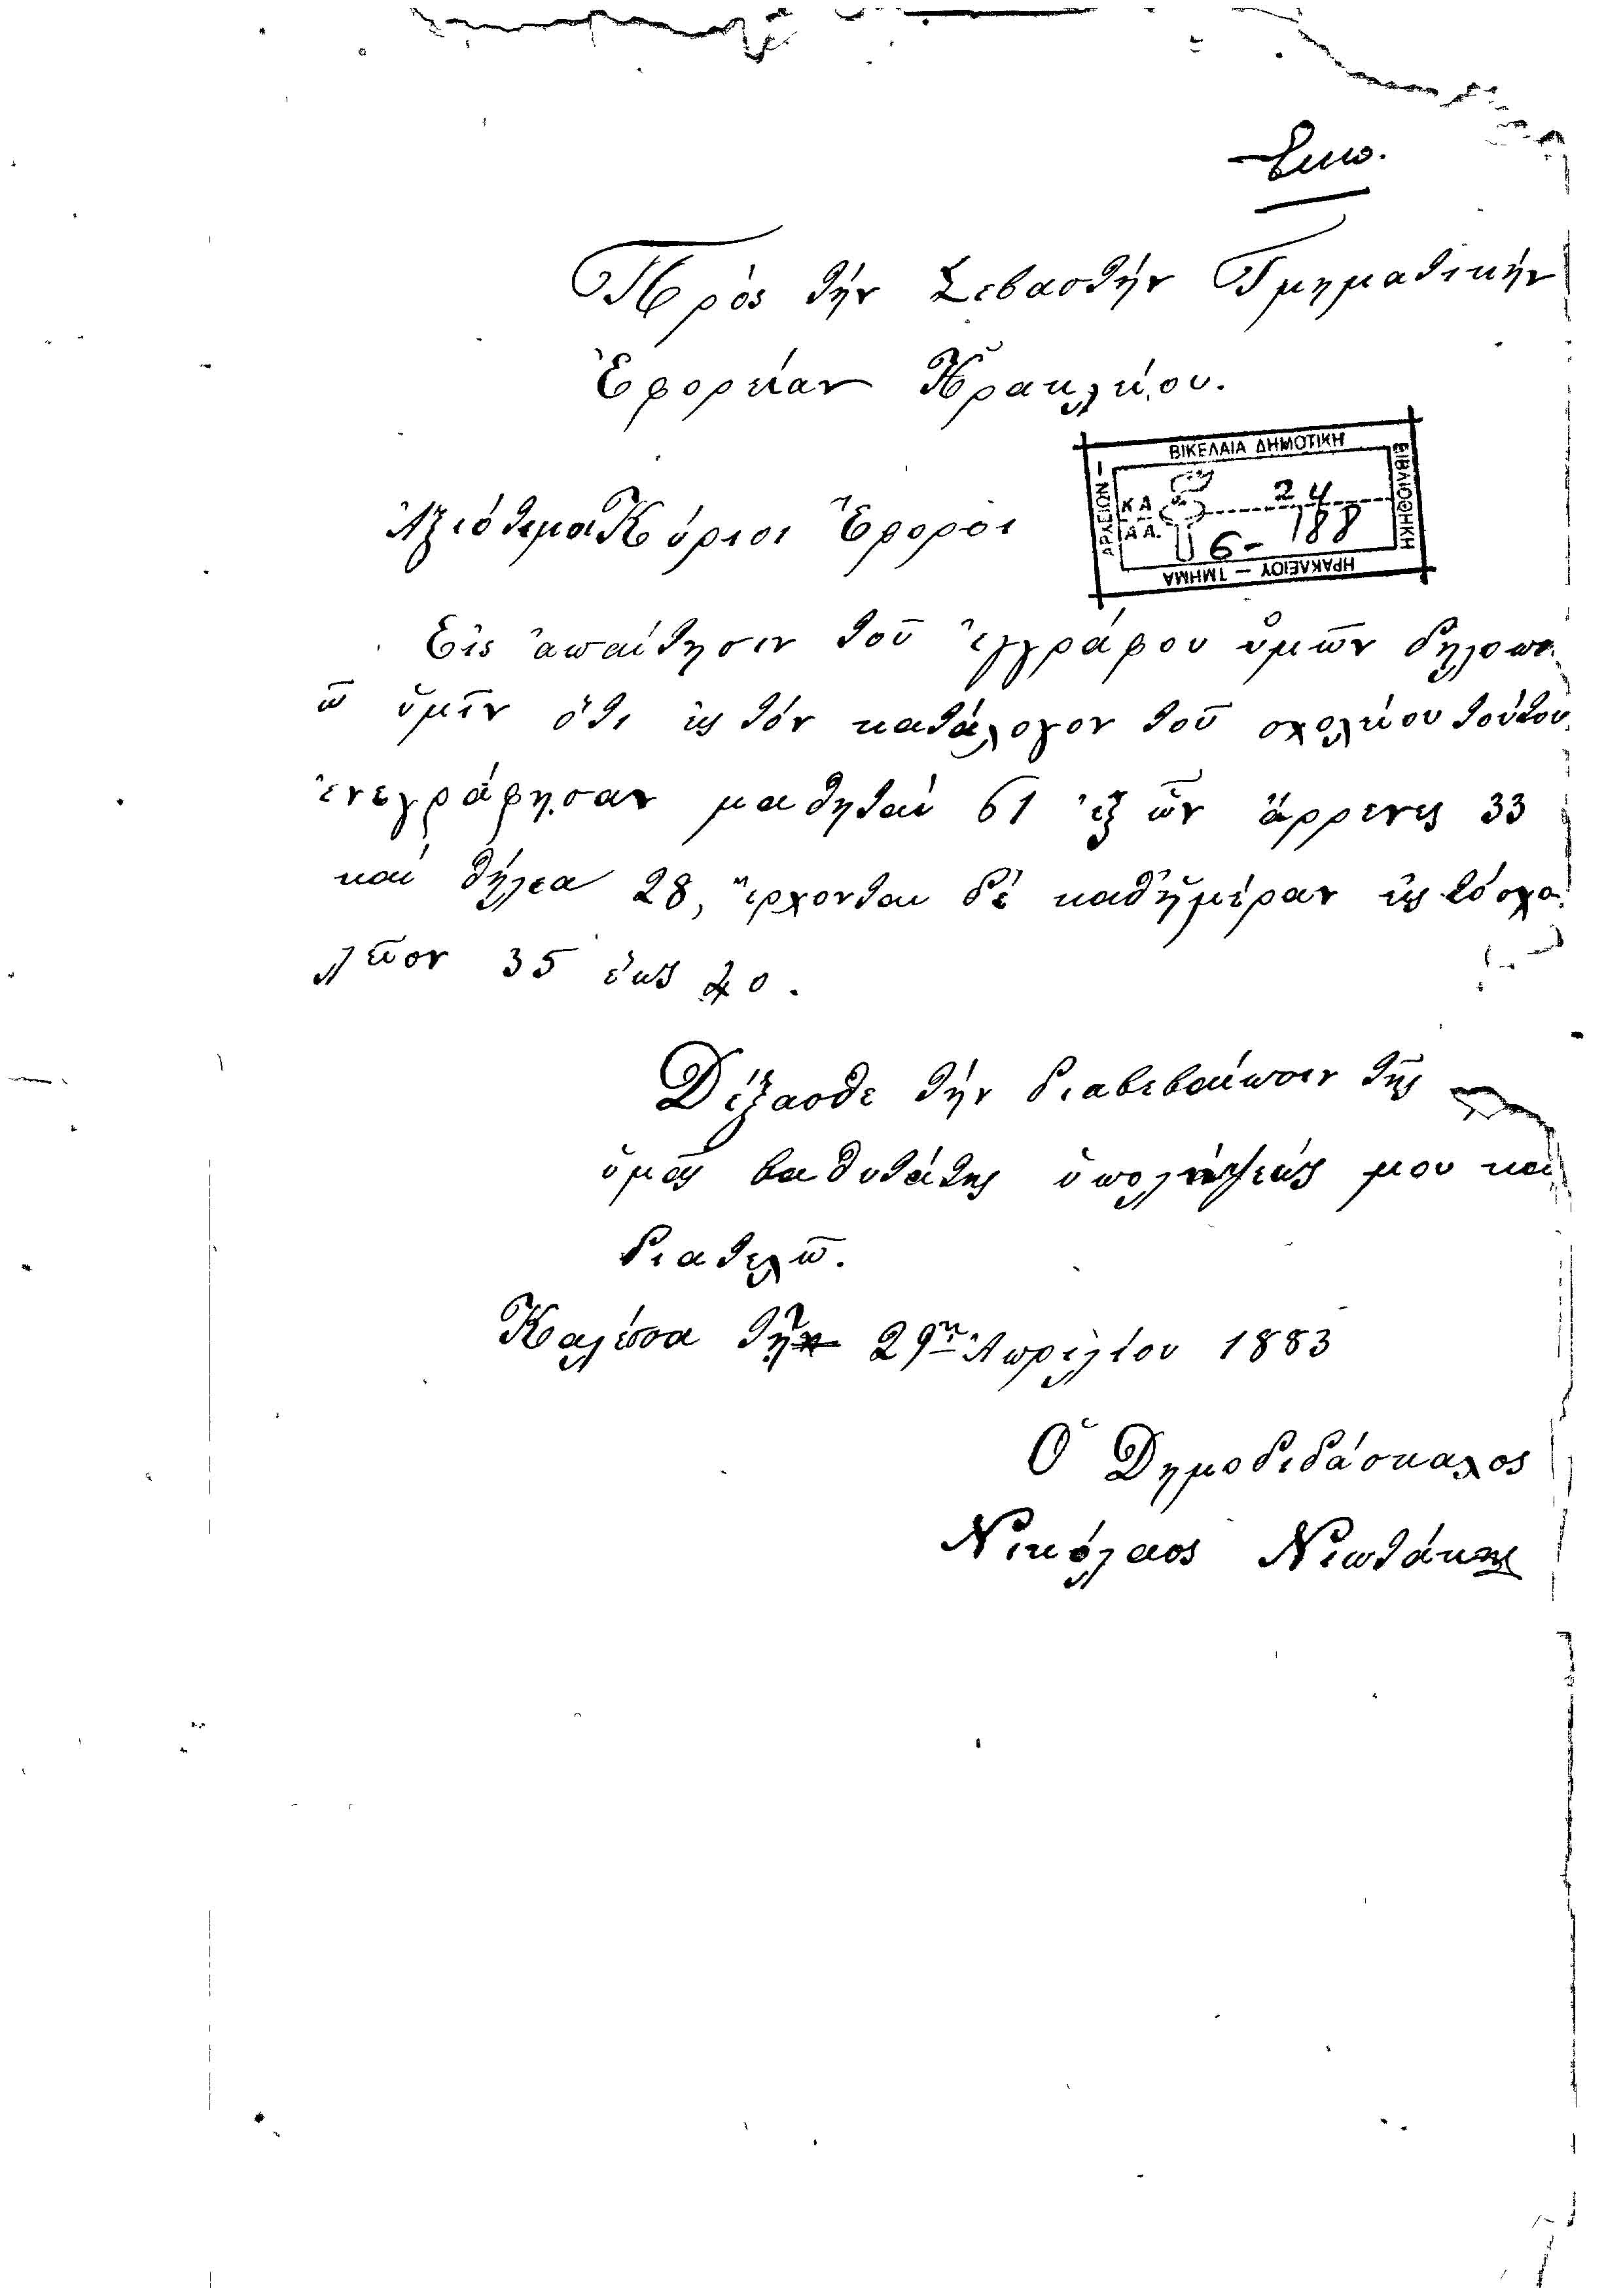 Πρὸς τήν Σεβαστήν Τμηματικήν
Ἐφορείαν Ἡρακλείου.
ΒΙΚΕΛΑΙΑ ΔΗΜΟΤΙΚΗ
ΒΙΒΛΙΟΘΗΚΗ
ΗΡΑΚΛΕΙΟΥ — ΤΜΗΜΑ
ΑΡΧΕΙΩΝ —
Κ Α 24
Α Α. 6- 188
Ἀξιότιμοι Κύριοι Ἔφοροι
Εἰς ἀπαίτησιν τοῦ ἐγγράφου ὑμῶν δηλοποι
ῶ ὑμῖν ὅτι εἰς τόν κατάλογον τοῦ σχολείου τούτου
ἐνεγράφησαν μαθηταί 61 ἐξ ὧν ἄρρενες 33
καί θήλεα 28, ἔρχονται δέ καθ' ἡμέραν εἰς τό σχο
λεῖον 35 ἕως 40.
Δέξασθε τήν διαβεβαίωσιν τῆς
ὑμᾶς βαθυτάτης ὑπολήψεώς μου καί
διατελῶ.
Καλέσσα τῇ 29ῃ Ἀπριλίου 1883
Ὁ Δημοδιδάσκαλος
Νικόλαος Νιωτάκης